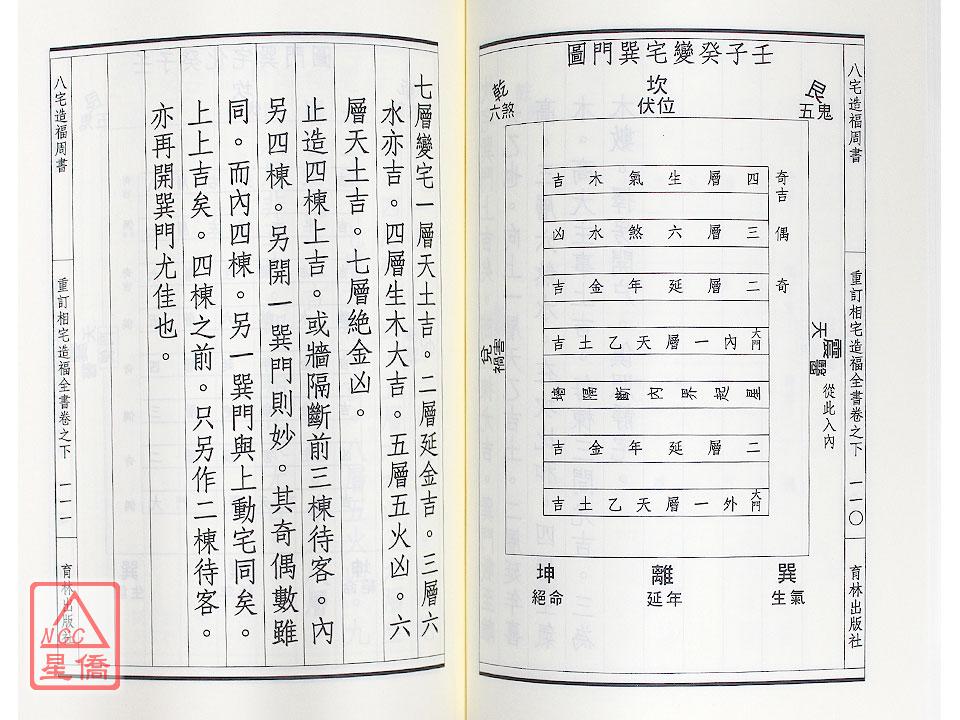 八宅造福周書
重訂相宅造福全書卷之下
一一〇
育林出版社
壬子癸變宅巽門圖
艮
五鬼
坎
伏位
乾
六煞
四層生氣木吉
奇吉
三層六煞水凶
偶
二層延年金吉
奇
大門
內一層天乙土吉
震
天醫
從此入內
兌
禍害
星起界內斷隔墻
二層延年金吉
大門
外一層天乙土吉
巽
生氣
離
延年
坤
絕命
七層變宅一層天土吉。二層延金吉。三層六
水亦吉。四層生木大吉。五層五火凶。六
層天土吉。七層絕金凶。
止造四棟上吉。或牆隔斷前三棟待客。內
另四棟。另開一巽門則妙。其奇偶數雖
同。而內四棟。另一巽門與上動宅同矣。
上上吉矣。四棟之前。只另作二棟待客。
亦再開巽門尤佳也。
八宅造福周書
重訂相宅造福全書卷之下
一一一
育林出版社
NCC
星僑